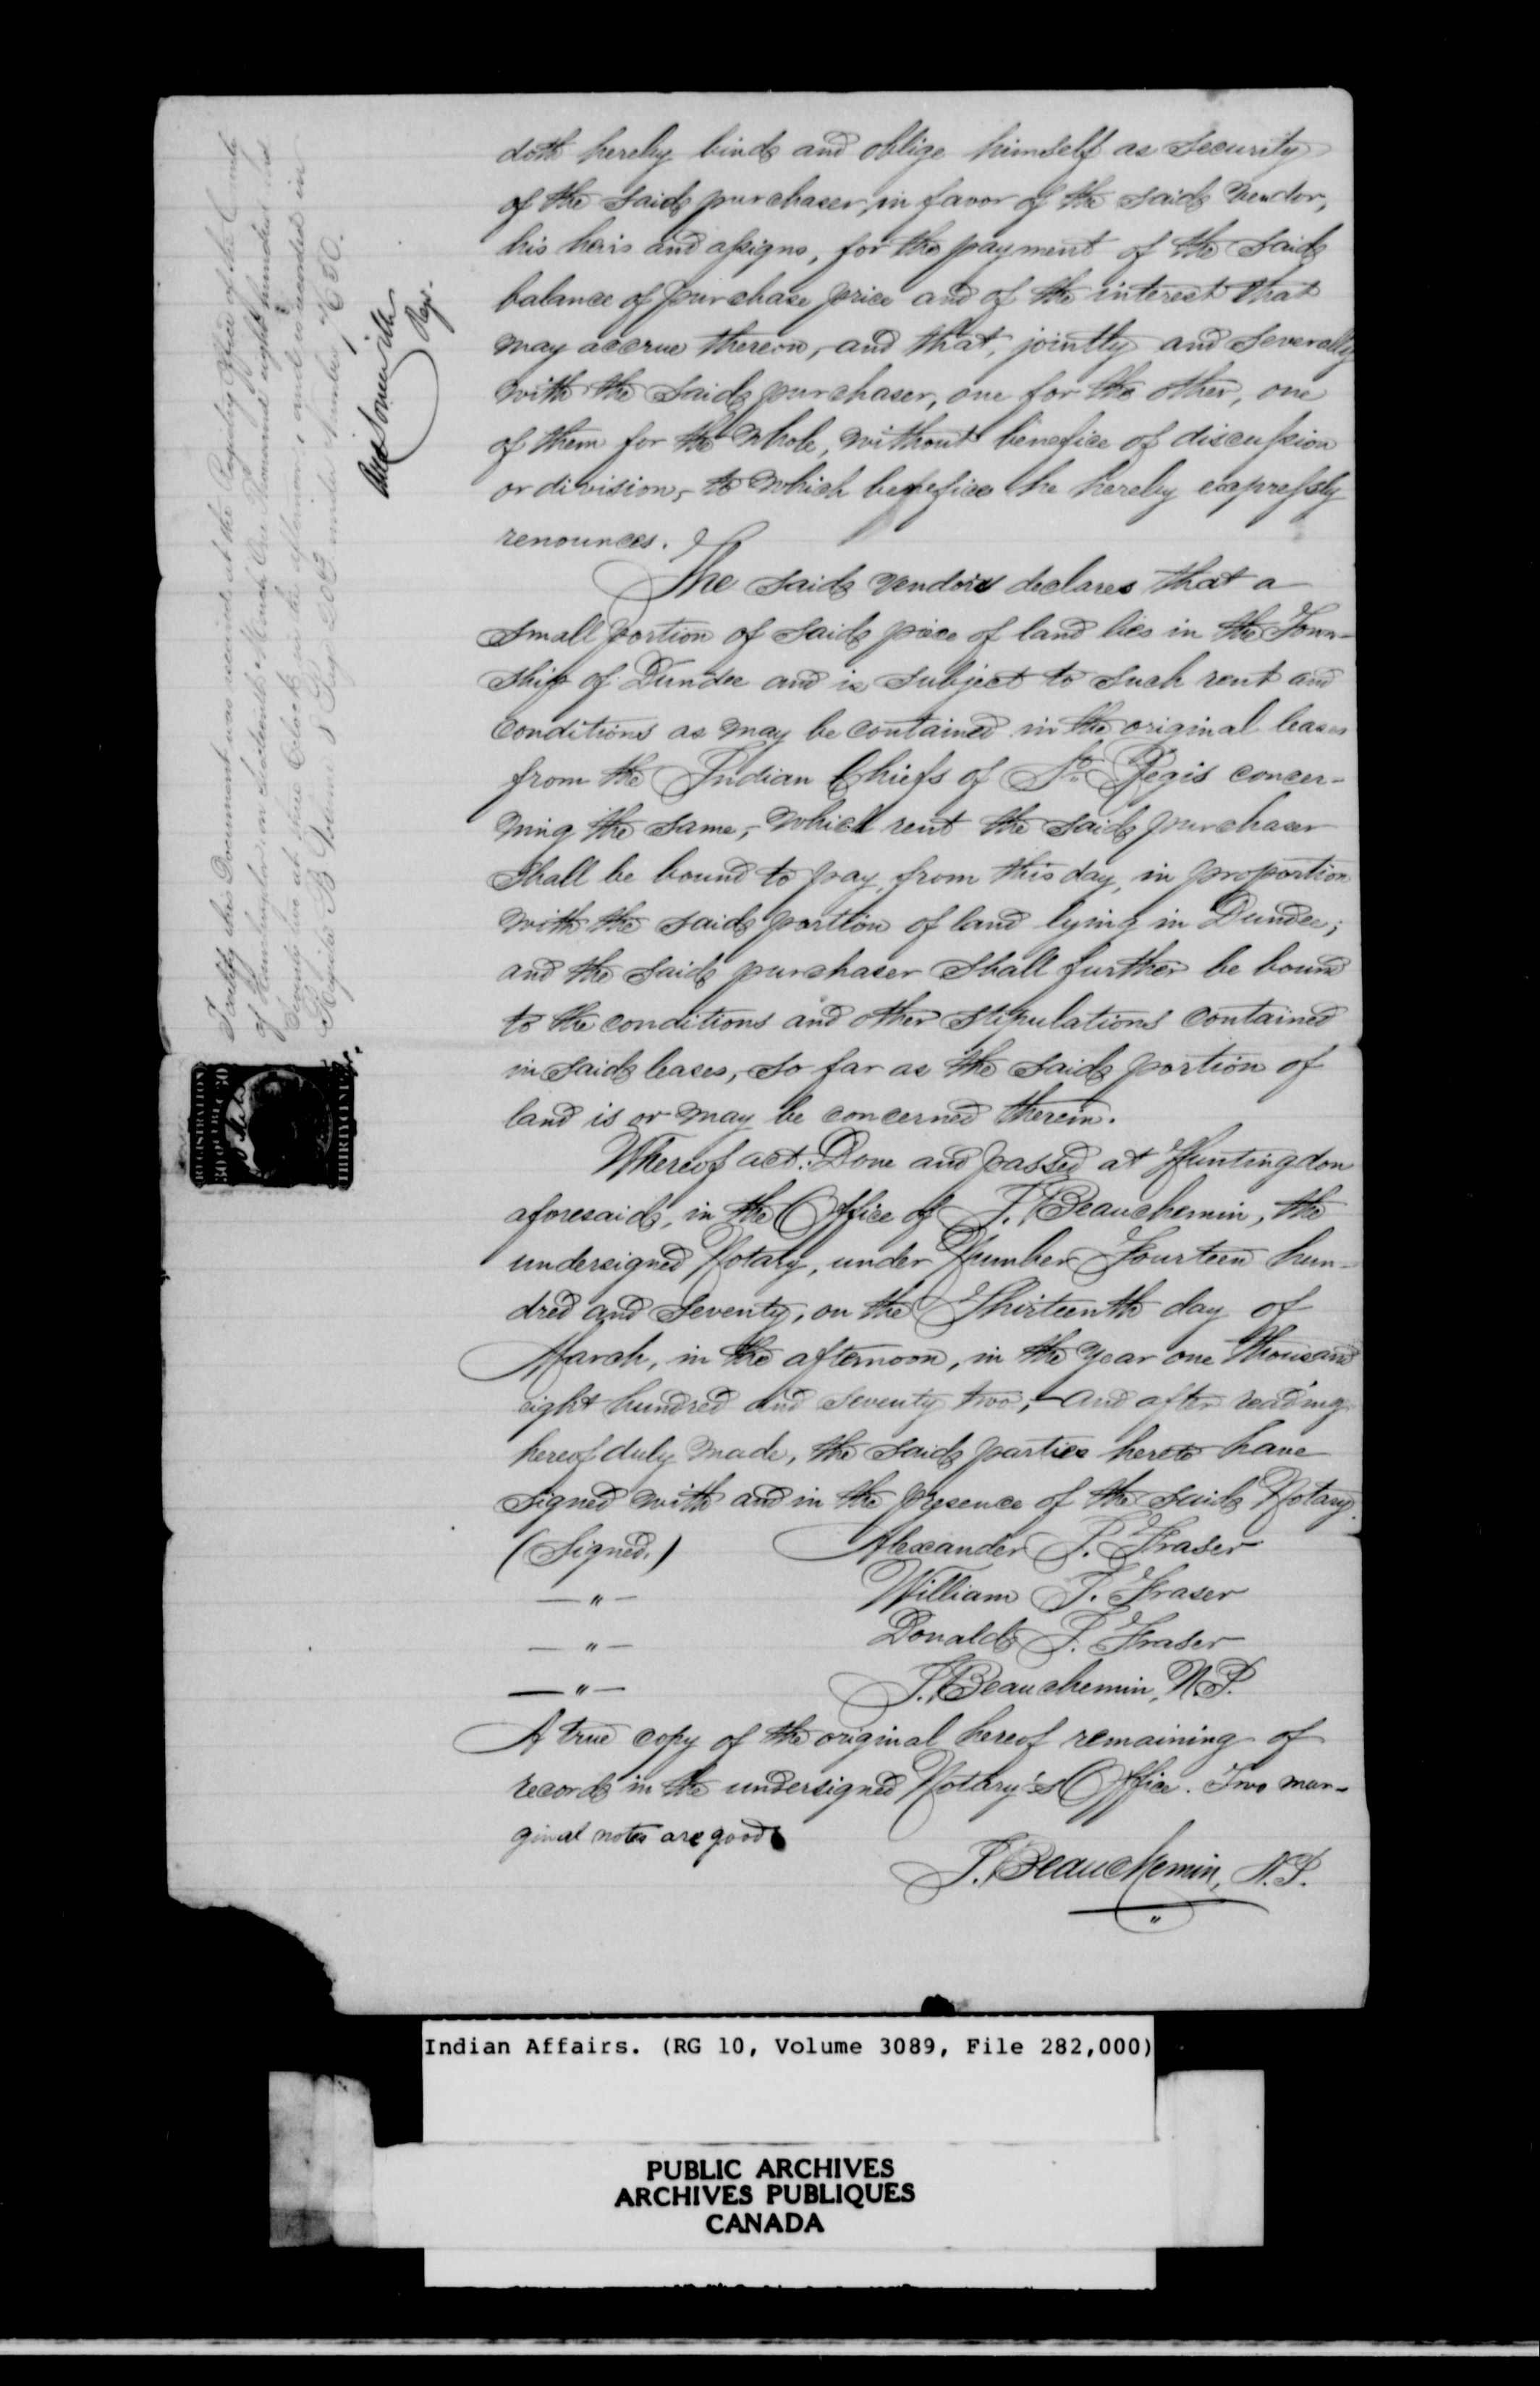 doth hereby bind and oblige himself as Security
of the said purchaser, in favor of the said Vendor,
his heirs and assigns, for the payment of the said
balance of purchase price and of the interest that
may accrue thereon, and that, jointly and severally
with the said purchaser, one for the other, one
of them for the whole, without benefice of discussion
or division, to which benefice he hereby expressly
renounces.
The said vendor declares that a
small portion of said piece of land lies in the Town-
ship of Dundee and is subject to such rent and
conditions as may be contained in the original leases
from the Indian Chiefs of St. Regis concer-
ning the same, which rent the said purchaser
shall be bound to pay, from this day, in proportion
with the said portion of land lying in Dundee;
and the said purchaser shall further be bound
to the conditions and other stipulations contained
in said leases, so far as the said portion of
land is or may be concerned therein.
Whereof act: Done and passed at Huntingdon
aforesaid, in the Office of J. Beauchemin, the
undersigned Notary, under Number Fourteen hun-
dred and seventy, on the Thirteenth day of
March, in the afternoon, in the year one thousand
eight hundred and seventy two; and after reading
hereof duly made, the said parties hereto have
signed with and in the presence of the said Notary.
(Signed.) Alexander J. Fraser
— " — William J. Fraser
— " — Donald J. Fraser
— " — J. Beauchemin, N.P.
A true copy of the original hereof remaining of
record in the undersigned Notary's Office. Two mar-
ginal notes are good
J. Beauchemin, N.P.
I certify this Document was received at the Registry Office of the County
of Huntingdon on sixteenth March One Thousand eight hundred and
Seventy two at three O'clock in the afternoon, and is recorded in
Register B Volume 8 Page 206 under Number
Reg.
REGISTRATION
30 QUEBEC 30
THIRTY CENTS
Indian Affairs. (RG 10, Volume 3089, File 282,000)
PUBLIC ARCHIVES
ARCHIVES PUBLIQUES
CANADA